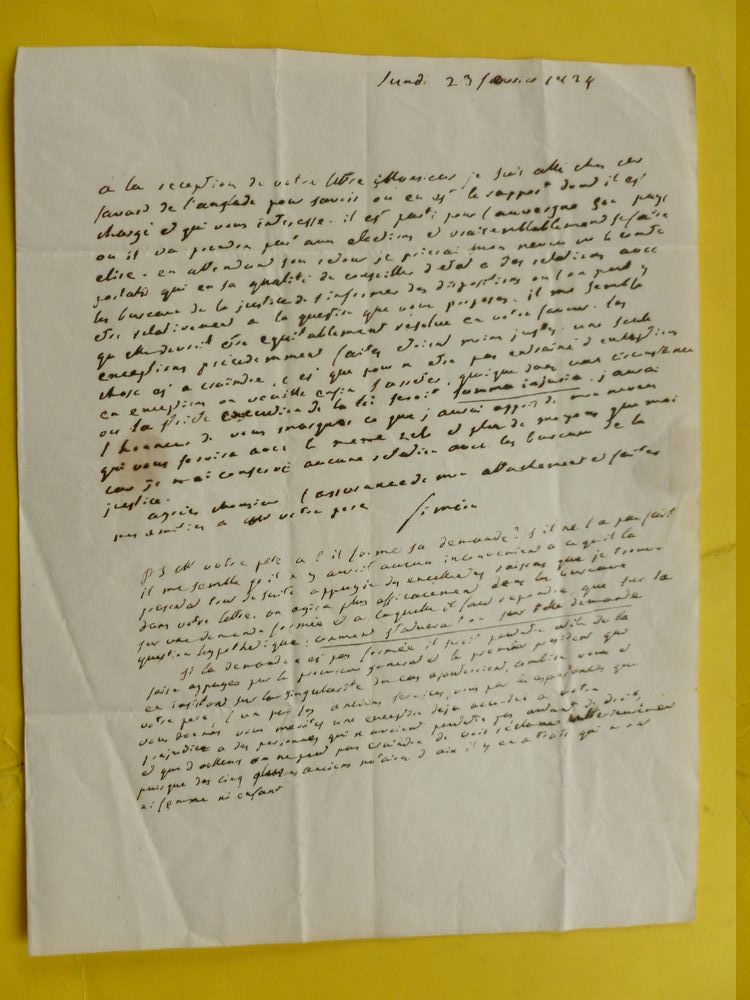 lundi 23 février 1824
à la reception de votre lettre Monsieur je suis allé chez
Savard de l'anglade pour savoir ou en est le rapport dont il est
chargé et qui vous interesse. il est parti pour l'auvergne son pays
ou il va prendre part aux elections et vraisemblablement se faire
elire. en attendant son retour je prierai mon neveu le comte
portalis qui en sa qualité de conseiller d'état a des relations avec
les bureaux de la justice de s'informer des dispositions ou l'on peut y
etre relativement a la question que vous proposez. il me semble
qu'elle devroit etre equitablement resolue en votre faveur. les
exceptions précédemment faites etoient moins justes. une seule
chose est a craindre, c'est que pour n'etre pas entrainé d'exceptions
en exceptions on veuille enfin s'arreter, quoique dans une circonstance
ou la stricte execution de la loi seroit summa injuria. j'aurai
l'honneur de vous marquer ce que j'aurai appris de mon neveu
qui vous servira avec le meme zele et plus de moyens que moi
car je n'ai conservé aucune relation avec les bureaux de la
justice.
agréez monsieur l'assurance de mon attachement et faites
mes amitiés a votre pere
Siméon
PS M votre pere a t il formé sa demande? s'il ne l'a pas fait
il me semble qu'il n'y auroit aucun inconvenient a ce qu'il la
présentat tout de suite appuyée des excellentes raisons que je trouve
dans votre lettre. on agira plus efficacement dans les bureaux
sur une demande formée et a laquelle il faut repondre, que sur la
question hypothetique: comment statuera t'on sur telle demande
Si la demande n'est pas formée il seroit peutetre utile de la
faire appuyer par le procureur general et le premier president qui
en insistant sur la singularité du cas ajouteroient combien vous et
votre pere, l'un par les anciens services, vous par les esperances que
vous donnez vous meritez une exception deja accordée a votre
prejudice a des personnes qui n'avoient peutetre pas autant de droits,
et que d'ailleurs on ne peut pas craindre de voir reclamer ulterieurement
puisque des cinq anciens notaires d'aix il y en a trois qui n'ont
ni femme ni enfant